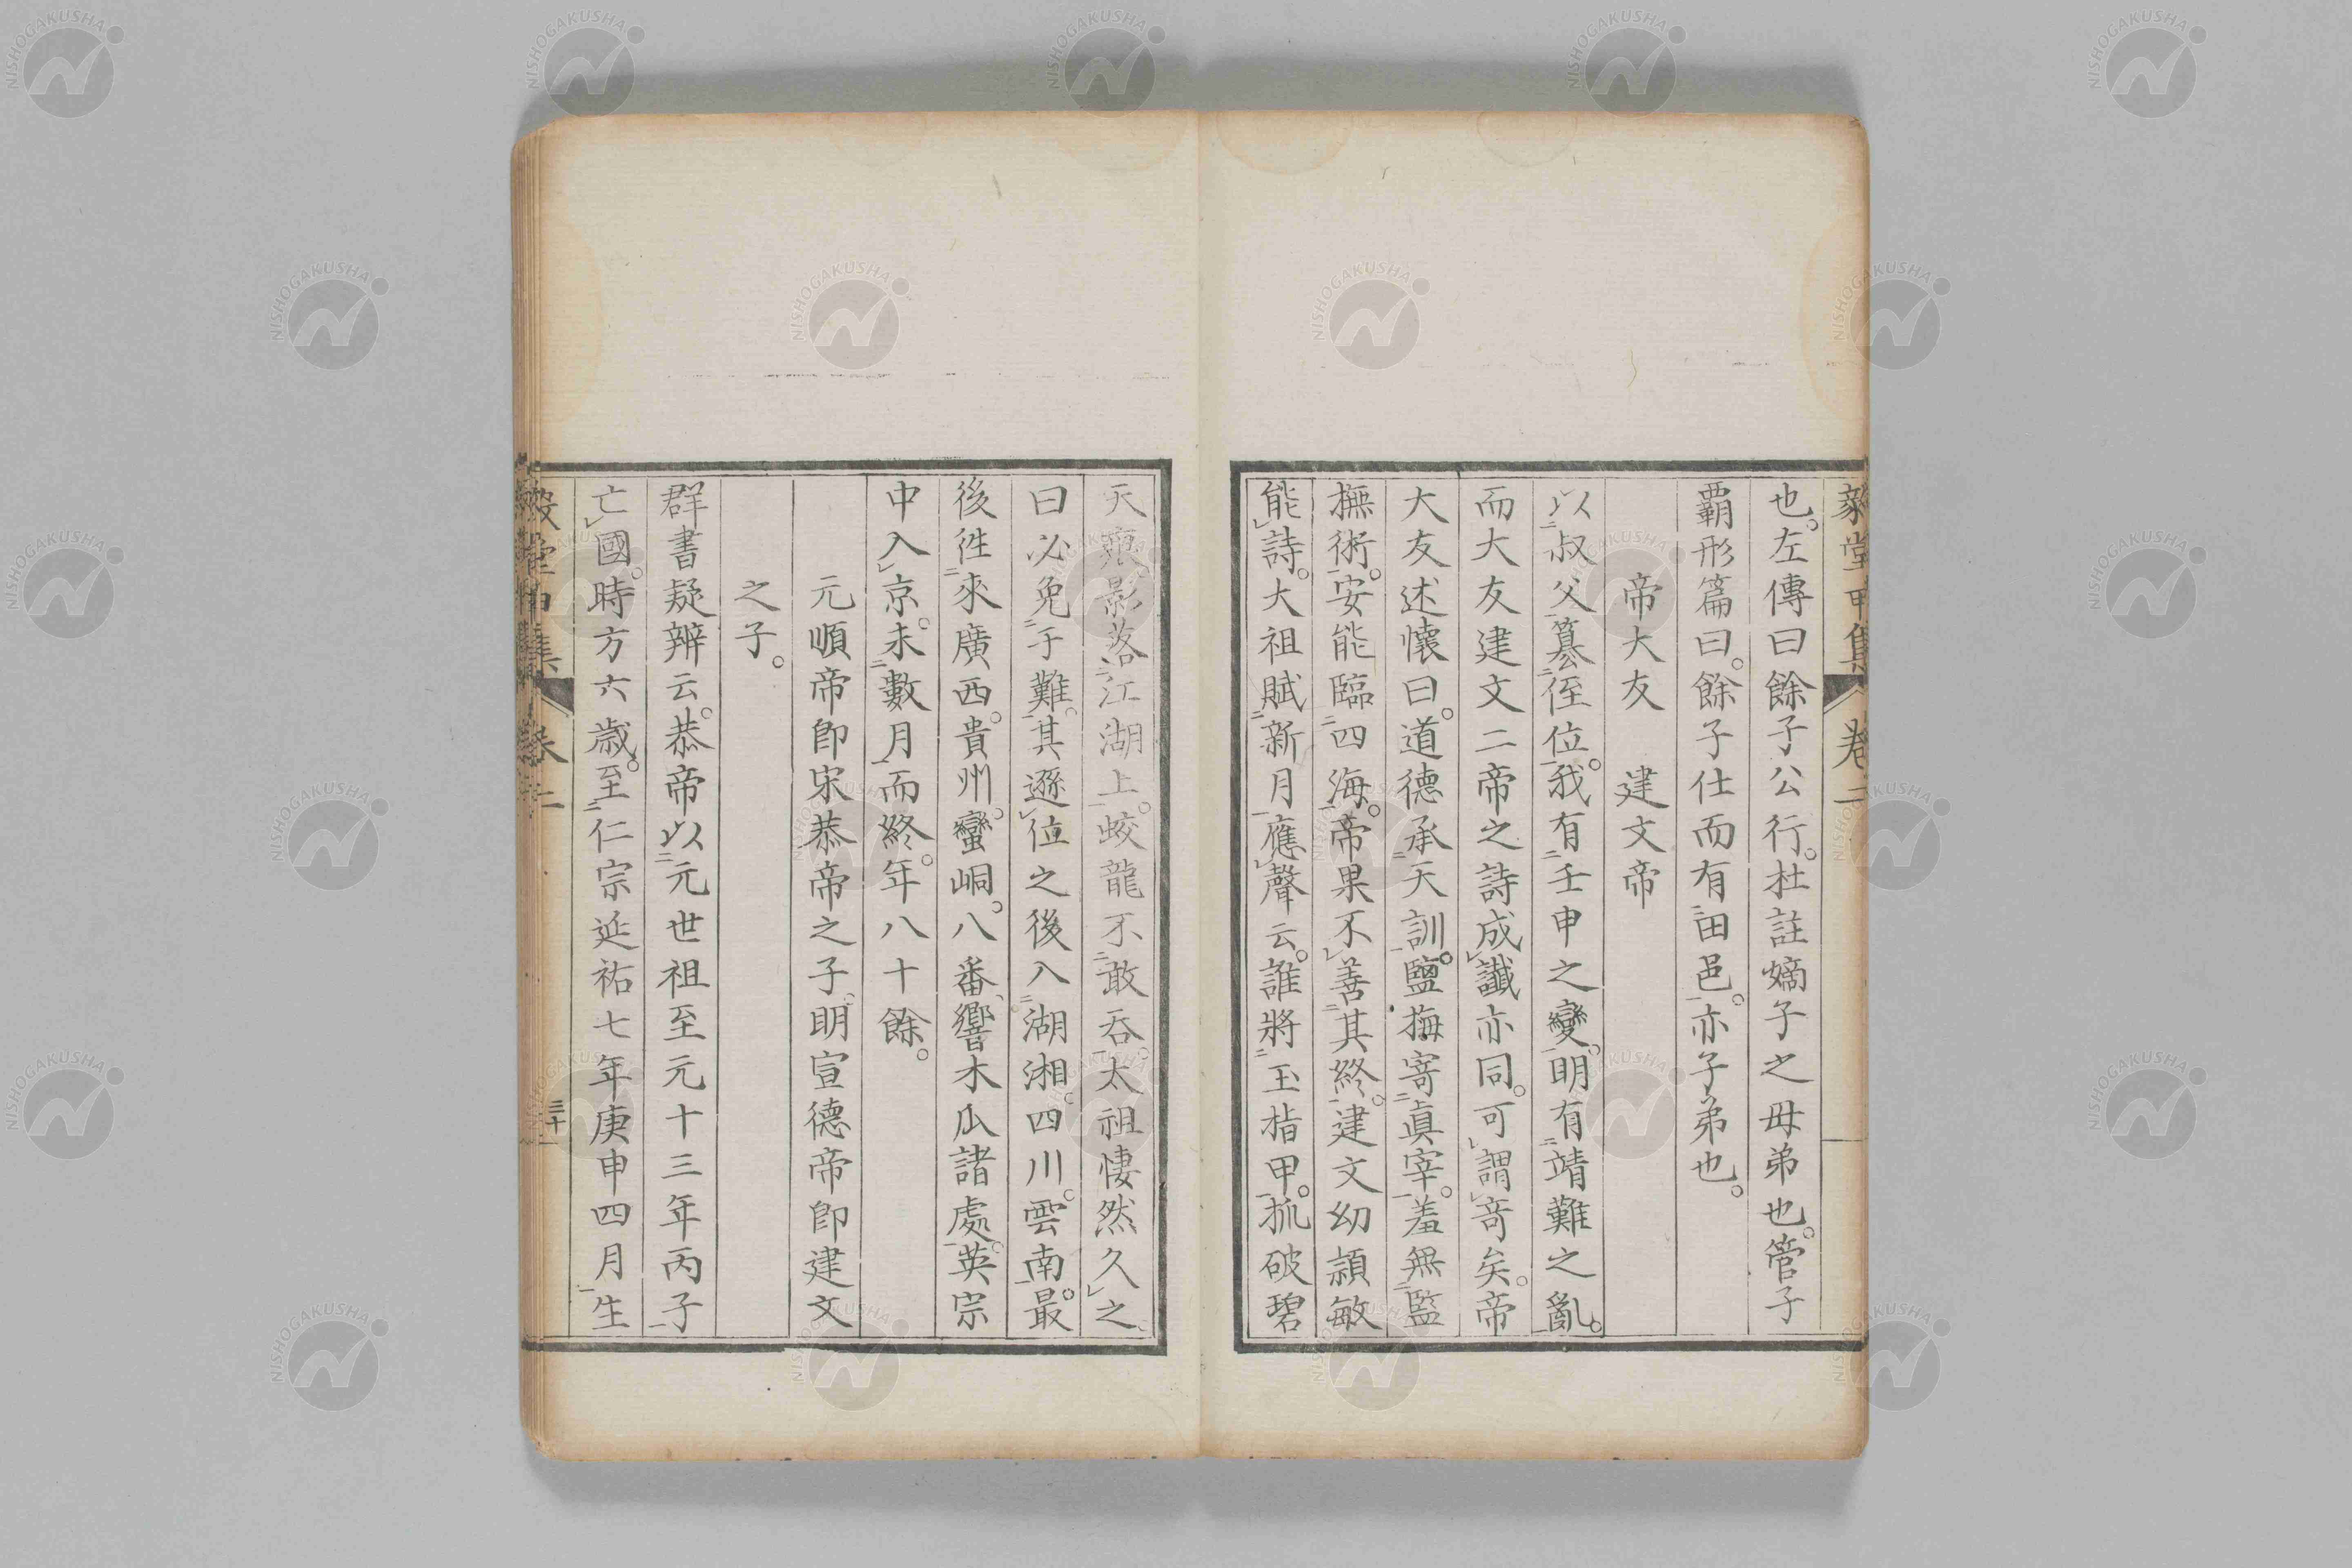 也。左傳曰餘子公行。杜註嫡子之母弟也。管子
覇形篇曰。餘子仕而有田邑。亦子弟也。
帝大友　建文帝
以叔父簒侄位。我有壬申之變。明有靖難之亂。
而大友建文二帝之詩成讖亦同。可謂竒矣。帝
大友述懷曰。道德承天訓。鹽梅寄眞宰。羞無監
撫術。安能臨四海。帝果不善其終。建文幼頴敏
能詩。大祖賦新月應聲云。誰將玉指甲。抓破碧
天痕。影落江湖上。蛟龍不敢吞。太祖悽然久之。
曰必免于難。其遜位之後入湖湘。四川。雲南。最
後徃來廣西。貴州。蠻峒。八番、響木瓜諸處。英宗
中入京。未數月而終。年八十餘。
元順帝卽宋恭帝之子。明宣德帝卽建文
之子。
群書疑辨云。恭帝以元世祖至元十三年丙子
亡國。時方六歳。至仁宗延祐七年庚申四月生
堂甲集
卷二
三十一
NISHOGAKUSHA